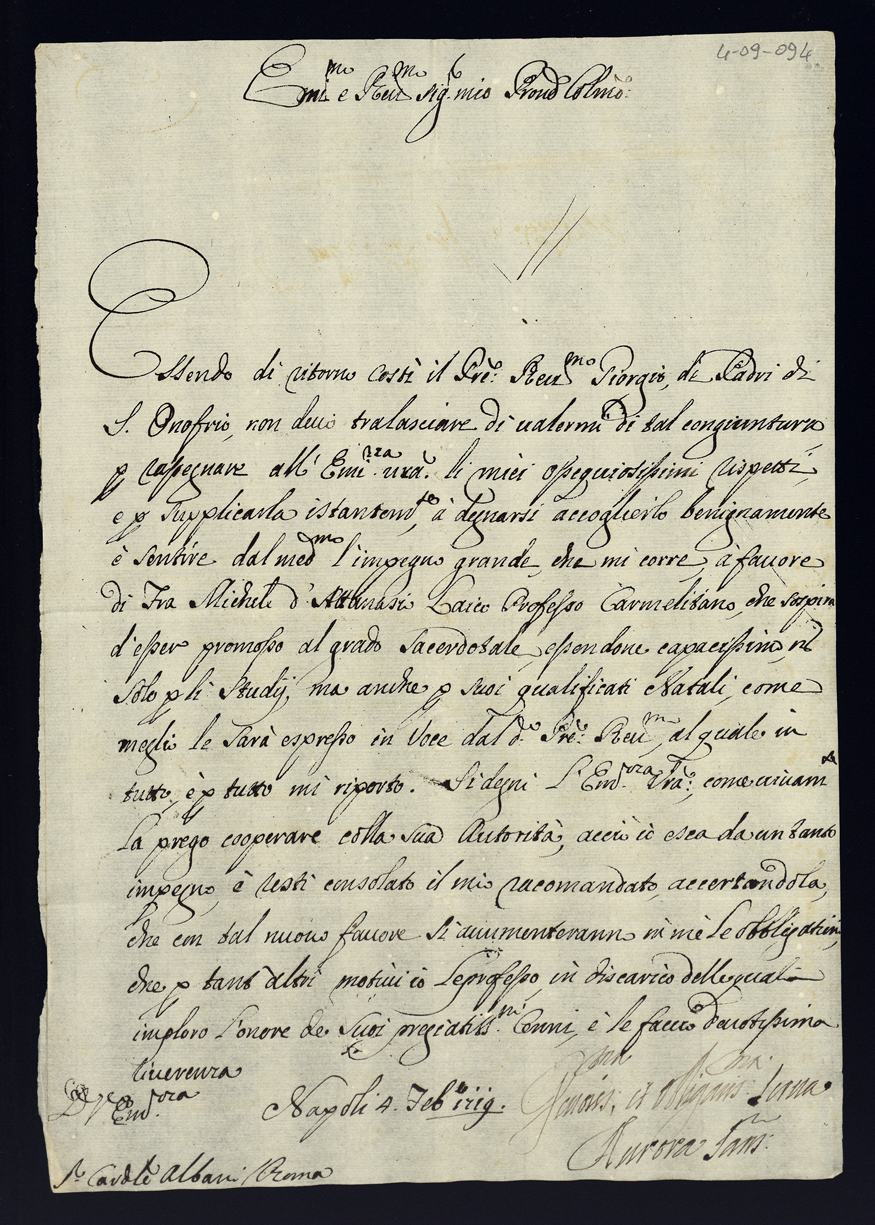 4-09-094
Em:mo e Reu:mo Sig:r mio Prone Colmo:
Essendo di ritorno costì il Pre: Reu:mo Giorgio, de Padri di
S. Onofrio, non deuo tralasciare di ualermi di tal congiuntura
p rassegnare all' Emi:nza ura: li miei ossequiosissimi rispetti,
e p supplicarla istantem:te, à degnarsi accoglierlo benignamente
è sentire dal med:mo l'impegno grande, che mi corre, a fauore
di Fra Michele d'Attanasi Laico Professo Carmelitano, che sospira
d'esser promosso al grado sacerdotale, essendone capacissimo, nō
solo p li Studij, ma anche p suoi qualificati Natali, come
meglio le sarà espresso in Voce dal d:o Pre: Reu:mo, al quale in
tutto, è p tutto mi riporto. Si degni L'Em:nza Vra:, come uiuam:te
La prego cooperare colla sua Autorità, acciò io esca da un tanto
impegno, è resti consolato il mio racomandato, accertandola,
che con tal nuouo fauore si aumenteranno in mè le obbligationi,
che p tant'altri motiui io Le professo, in discarico delle quali
imploro l'onore de Suoi pregiatiss:mi Cenni, è le faccio deuotissima
riuerenza
Di V:ra Em:nza
Napoli 4. Feb:ro 1719.
et obligatis:ma Serua
Aurora San:
S:r Card:le Albani Roma